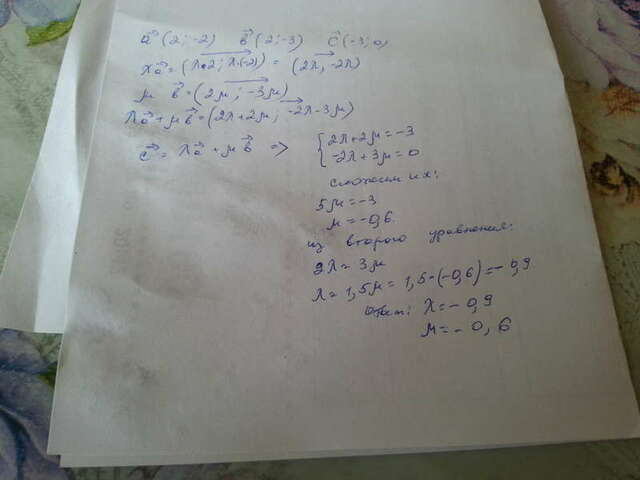 a⃗ (2; -2) b⃗ (2; -3) c⃗ (-3; 0)
λa⃗ = (λ•2; λ(-2)) = (2λ, -2λ)
μ b⃗ = (2μ; -3μ)
λa⃗ + μb⃗ = (2λ+2μ; -2λ-3μ)
c⃗ = λa⃗ + μb⃗ =>
{2λ+2μ=-3
-2λ+3μ=0
сложим их:
5μ=-3
μ=-0,6.
из второго уравнения:
2λ=3μ
λ=1,5μ=1,5•(-0,6)=-0,9
Ответ: λ=-0,9
μ=-0,6